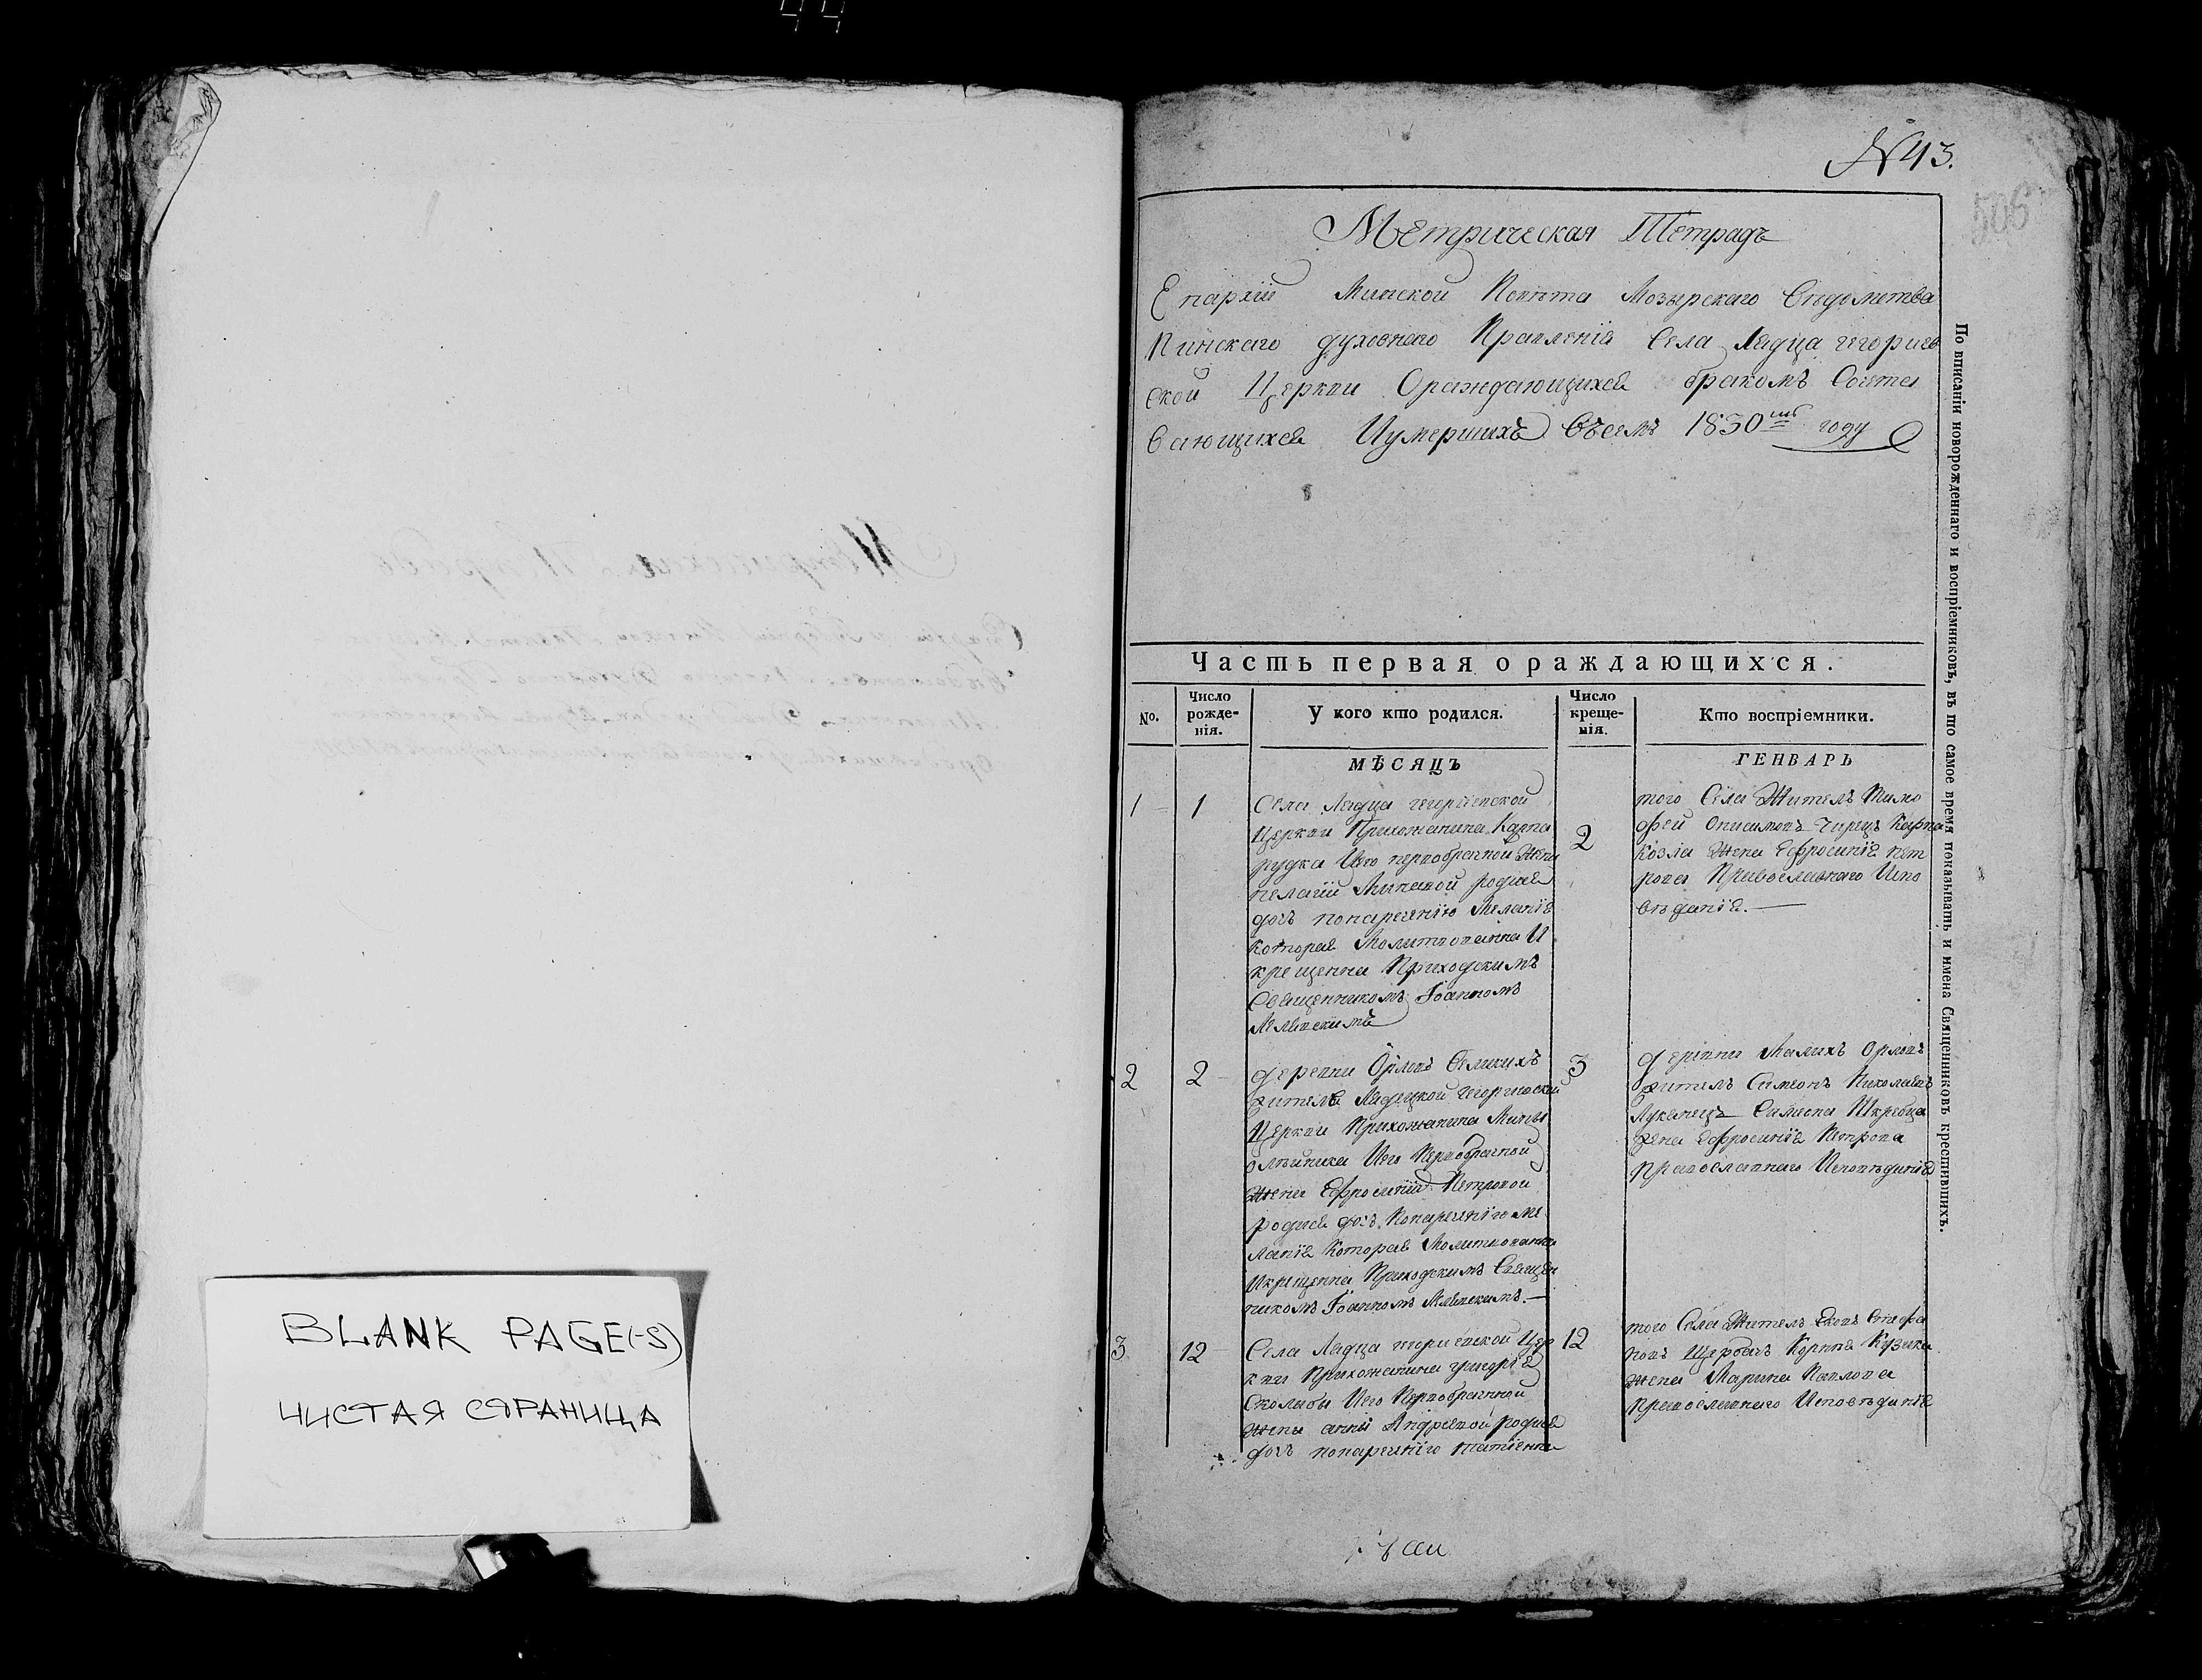 44
BLANK PAGE(-S)
ЧИСТАЯ СТРАНИЦА
N43.
506
Метрическая Тетрадь
Епархіи Минской Повѣта Мозырскаго Вѣдомства
Пинскаго духовнаго Правленія Села Лядца Георгиев
ской Церкви Ораждающихся бракомъ Сочета
вающихся Иумершихъ Въсемъ 1830 году
Часть первая о раждающихся.
No.
Число рожде-нія.
У кого кто родился.
Число креще-нія.
Кто воспріемники.
МѢСЯЦЪ
ГЕНВАРЬ
1
1
Села Лядца Георгіевской
Церкви Прихожанина Карпа
рудка Иего первобрачной Жены
пелагіи родися
дочь понареченію Меланія
которая Молитвованна И
крещенна Приходскимъ
Священникомъ Іоанномъ
2
того Села Житель Тимо
фей Онисимовъ
Козла Жена Ефросинія Пет
рова Православнаго Испо
вѣданія.
2
2
деревни Орловъ Великихъ
жителя Лядцкой Георгіевской
Церкви Прихожанина
Иего Первобрачной
Жены Ефросиніи Петровой
родися дочь Понареченію Ме
ланія Которая Молитвованна
Икрещенна Приходскимъ Священ
никомъ Іоанномъ
3
деревни Малыхъ Орловъ
житель Симеонъ Николаевъ
Лукашецъ Симеона Шкребца
жена Ефросинія Петрова
Православнаго Исповѣданія
3
12
Села Лядца Георгіевской Цер
кви Прихожанина Григорія
Сколыбы Иего Первобрачной
Жены анны Андреевой родися
дочь понареченію татіанна
12
того Села Житель Стефа
новъ Щербачъ
жена Марина Павлова
Православнаго Исповѣданія
По вписаніи новорожденнаго и воспріемниковъ, въ то самое время показывать и имена Священниковъ крестившихъ.